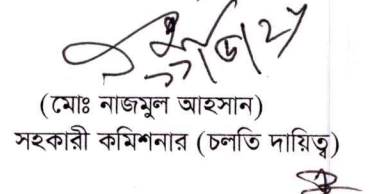 (মোঃ নাজমুল আহসান)
সহকারী কমিশনার (চলতি দায়িত্ব)